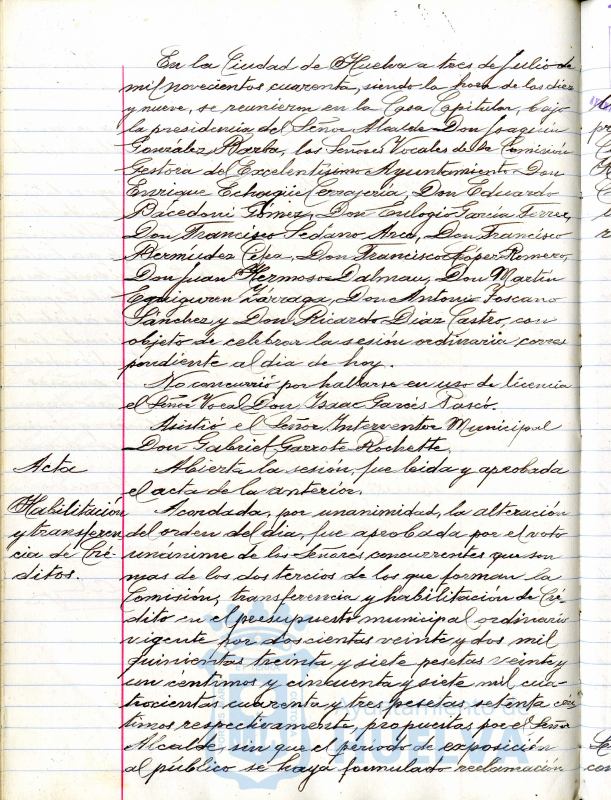 En la Ciudad de Huelva a tres de Julio de
mil novecientos cuarenta, siendo la hora de las diez
y nueve, se reunieron en la Casa Capitular, bajo
la presidencia del Señor Alcalde Don Joaquín
González Barba, los Señores Vocales de la Comisión
Gestora del Excelentísimo Ayuntamiento Don
Enrique Echagüe Cerrajería, Don Eduardo
Bacedoni Gómez, Don Eulogio García Ferrer,
Don Francisco Sedano Arce, Don Francisco
Bermúdez Cepa, Don Francisco López Romero,
Don Juan Hermoso Dalmau, Don Martín
Eguiguren Lárraga, Don Antonio Toscano
Sánchez y Don Ricardo Díaz Castro, con
objeto de celebrar la sesión ordinaria corres
pondiente al dia de hoy.
No concurrió por hallarse en uso de licencia
el Señor Vocal Don Isaac Garcés Pascó.
Asistió el Señor Interventor Municipal
Don Gabriel Garrote Rochette.
Acta
Abierta la sesión, fue leida y aprobada
el acta de la anterior.
Habilitación
y transferen
cia de Cré-
ditos.
Acordada, por unanimidad, la alteración
del orden del dia, fue aprobada por el voto
unánime de los Señores concurrentes que son
mas de los dos tercios de los que forman la
Comisión, transferencia y habilitación de Cré
dito en el presupuesto municipal ordinario
vigente por doscientas veinte y dos mil
quinientas treinta y siete pesetas veinte y
un céntimos y cincuenta y siete mil cua
trocientas cuarenta y tres pesetas setenta cén
timos respectivamente, propuestas por el Señor
Alcalde, sin que el período de exposición
al público se haya formulado reclamación
Ayuntamiento de
HUELVA